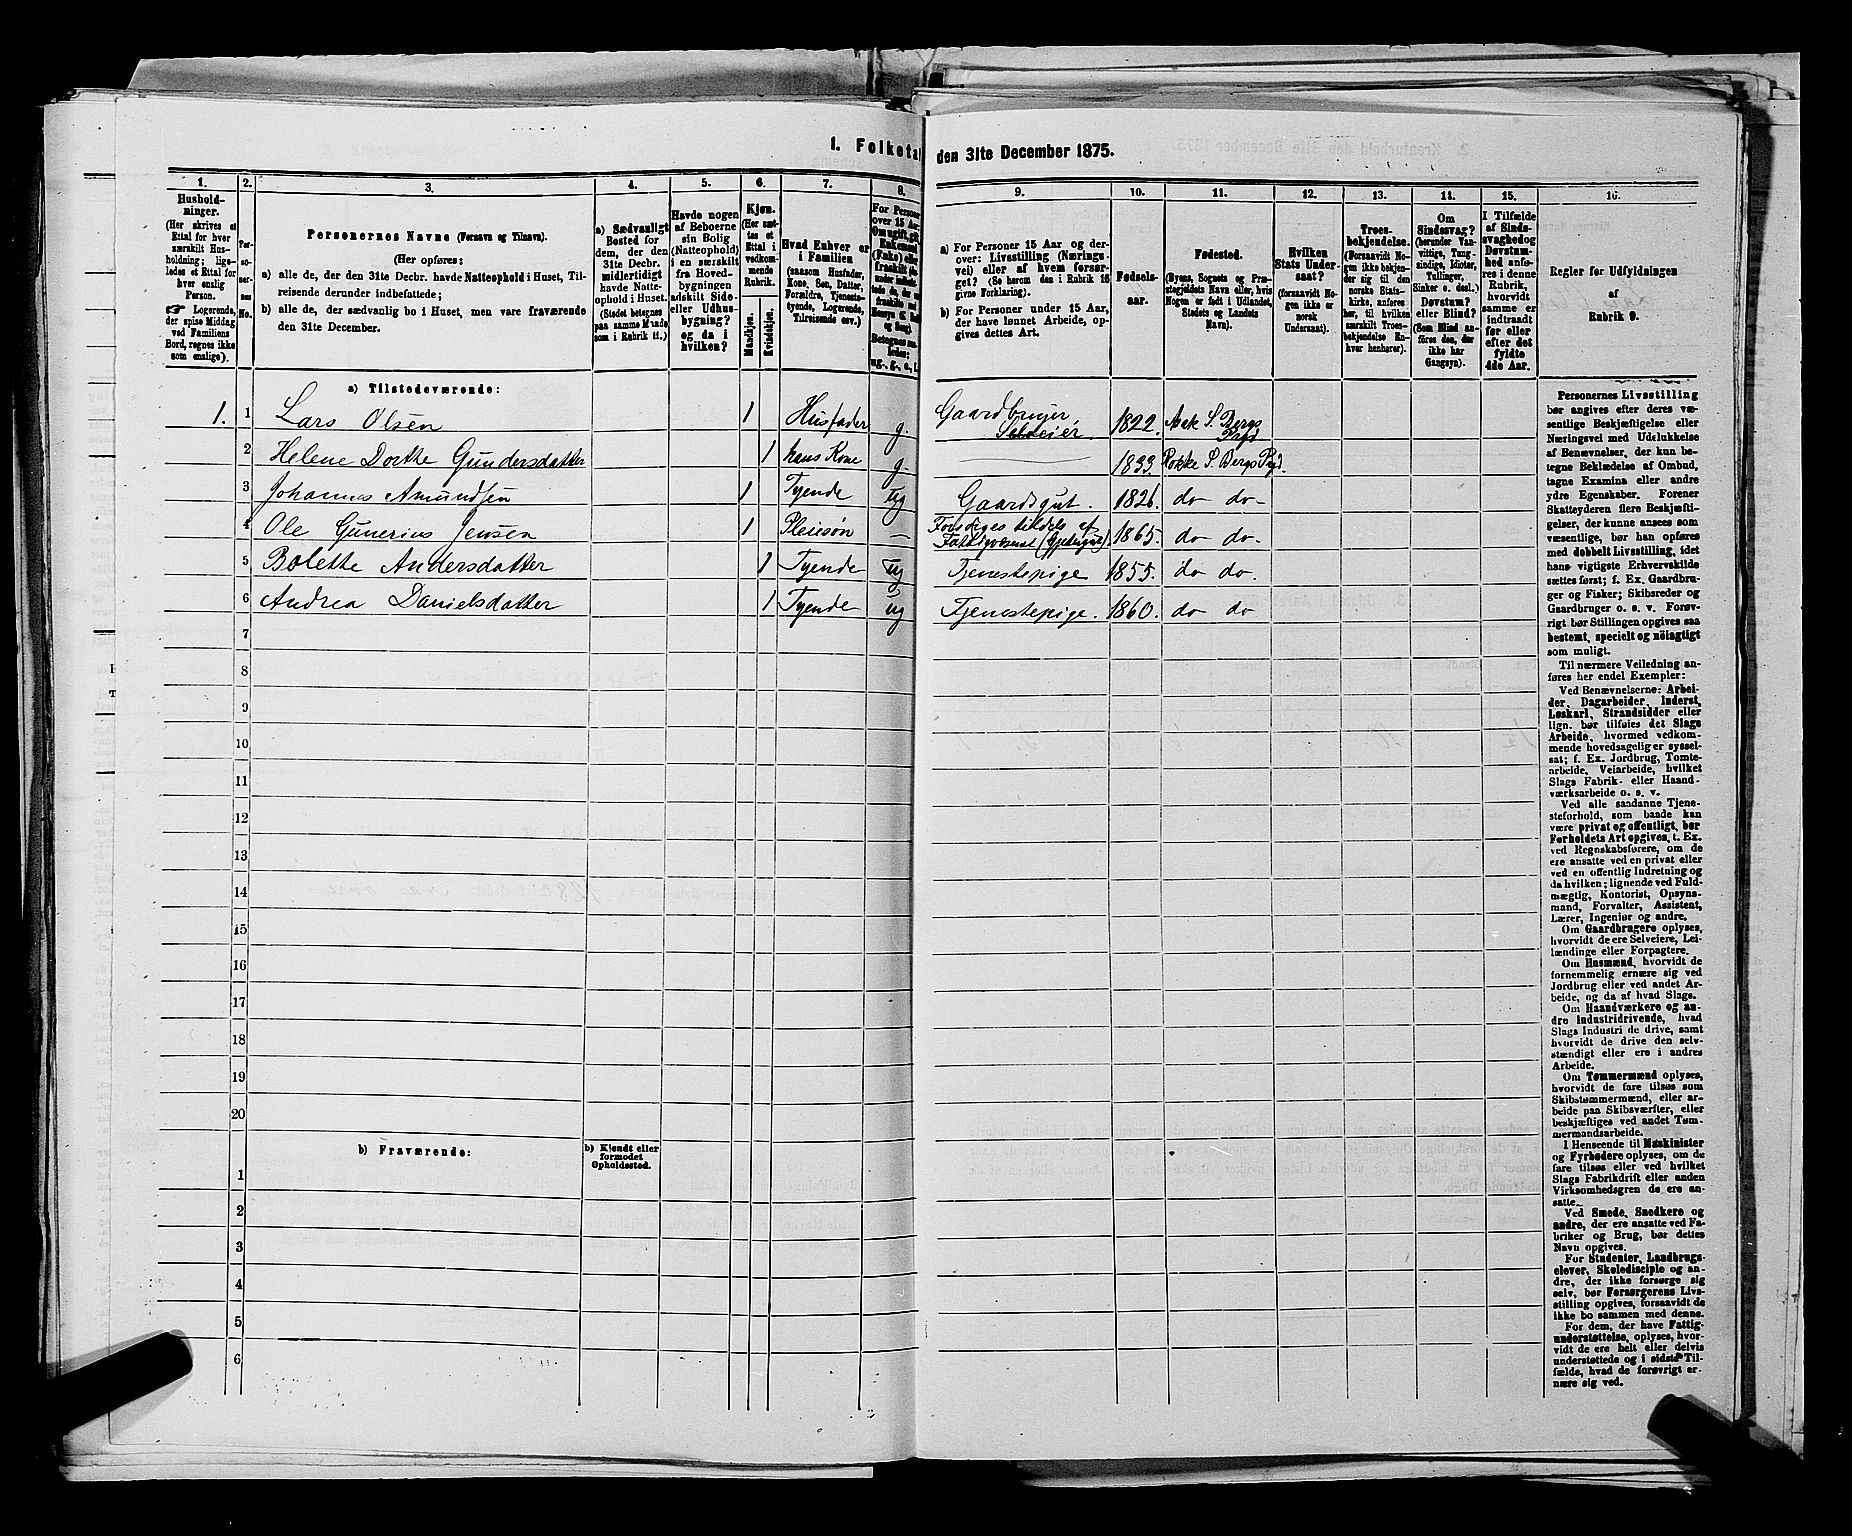 1. Folketal
den 31te December 1875.
1.
Hushold-
ninger.
(Her skrives et
Ettal for hver
særskilt Hus-
holdning; lige-
ledes et Ettal for
hver enslig
Person.
☛ Logerende,
der spise Middag
ved Familiens
Bord, regnes ikke
som enslige).
2.
Per-
so-
ner-
nes
No.
3.
Personernes Navne (Fornavn og Tilnavn).
(Her opføres:
a) alle de, der den 31te Decbr. havde Natteophold i Huset, Til-
reisende derunder indbefattede;
b) alle de, der sædvanlig bo i Huset, men vare fraværende
den 31te December.
4.
a) Sædvanligt
Bosted for
dem, der den
31te Decbr.
midlertidigt
havde Natte-
ophold i Huset.
(Stedet betegnes
paa samme Maade
som i Rubrik 11.)
5.
Havde nogen
af Beboerne
sin Bolig
(Natteophold)
i en særskilt
fra Hoved-
bygningen
adskilt Side-
eller Udhus-
bygning?
og da i
hvilken?
6.
Kjøn.
(Her sæt-
tes et
Ettal i
vedkom-
mende
Rubrik.
Mandkjøn.
Kvindekjøn.
7.
Hvad Enhver er
i Familien
(saasom Husfader,
Kone, Søn, Datter,
Forældre, Tjeneste-
tyende, Logerende,
Tilreisende osv.)
8.
For Personer
over 15 Aar:
9.
a) For Personer 15 Aar og der-
over: Livsstilling (Nærings-
vei) eller af hvem forsør-
get? (Se herom den i Rubrik 16
givne Forklaring).
b) For Personer under 15 Aar,
der have lønnet Arbeide, op-
gives dettes Art.
10.
Fødsels-
aar.
11.
Fødested.
(Byens, Sognets og Præ-
stegjeldets Navn eller, hvis
Nogen er født i Udlandet,
Stedets og Landets
Navn).
12.
Hvilken
Stats Under-
saat?
(forsaavidt No-
gen ikke er
norsk
Undersaat).
13.
Troes-
bekjendelse.
(Forsaavidt No-
gen ikke bekjen-
der sig til den
norske Stats-
kirke, anføres
her, til hvilken
særskilt Troes-
bekjendelse En-
hver henhører).
14.
Om
Sindssvag?
(herunder Van-
vittige, Tung-
sindige, Idioter,
Tullinger,
Sinker o. desl.)
Døvstum?
eller Blind?
(Som Blind an-
føres den, der
ikke har
Gangsyn).
15.
I Tilfælde
af Sinds-
svaghed og
Døvstum-
hed anfø-
res i denne
Rubrik,
hvorvidt
samme er
indtraadt
før eller
efter det
fyldte
4de Aar.
16.
Regler for Udfyldningen
af
Rubrik 9.
a) Tilstedeværende:
1. 1 Lars Olsen 1 Husfader g. Gaardbruger Selveier. 1822. Aak S. Bergs Pgd
2 Helene Dorthe Gundersdatter 1 hans Kone g. 1833. Rokke S. Bergs Pgd.
3 Johannes Amundsen 1 Tyende ug Gaardsgut. 1826. do do
4 Ole Gunerius Jensen 1 Pleiesøn — Forsørges tildels af Fattigvæsenet (Gjetergut) 1865. do do.
5 Bolette Andersdatter 1 Tyende ug Tjenestepige 1855. do do.
6 Andrea Danielsdatter 1 Tyende ug Tjenestepige. 1860. do do
7
8
9
10
11
12
13
14
15
16
17
18
19
20
b) Fraværende:
b) Kjendt eller
formodet
Opholdssted.
1
2
3
4
5
6
Personernes Livsstilling
bør angives efter deres væ-
sentlige Beskjæftigelse eller
Næringsvei med Udelukkelse
af Benævnelser, der kun be-
tegne Beklædelse af Ombud,
tagne Examina eller andre
ydre Egenskaber. Forener
Skatteyderen flere Beskjæfti-
gelser, der kunne ansees som
væsentlige, bør han opføres
med dobbelt Livsstilling, idet
hans vigtigste Erhvervskilde
sættes først; f. Ex. Gaardbru-
ger og Fisker; Skibsreder og
Gaardbruger o. s. v. Forøv-
rigt bør Stillingen opgives saa
bestemt, specielt og nöiagtigt
som muligt.
Til nærmere Veiledning an-
føres her endel Exempler:
Ved Benævnelserne: Arbei-
der, Dagarbeider, Inderst,
Løskarl, Strandsidder eller
lign. bør tilføies det Slags
Arbeide, hvormed vedkom-
mende hovedsagelig er syssel-
sat; f. Ex. Jordbrug, Tomte-
arbeide, Veiarbeide, hvilket
Slags Fabrik- eller Haand-
værksarbeide o. s. v.
Ved alle saadanne Tjene-
steforhold, som baade kan
være privat og offentligt, bør
Forholdets Art opgives, t. Ex.
ved Regnskabsførere, om de
ere ansatte ved en privat eller
ved en offentlig Indretning og
da hvilken; lignende ved Fuld-
mægtig, Kontorist, Opsyns-
mand, Forvalter, Assistent,
Lærer, Ingeniør og andre.
Om Gaardbrugere oplyses,
hvorvidt de ere Selveiere, Lei-
lændinge eller Forpagtere.
Om Husmænd, hvorvidt de
fornemmelig ernære sig ved
Jordbrug eller ved andet Ar-
beide, og da af hvad Slags.
Om Haandværkere og an-
dre Industridrivende, hvad
Slags Industri de drive, samt
hvorvidt de drive den selv-
stændigt eller ere i andres
Arbeide.
Om Tømmermænd oplyses,
hvorvidt de fare tilsøs som
Skibstømmermænd, eller ar-
beide paa Skibsværfter, eller
beskjæftiges ved andet Tøm-
mermandsarbeide.
I Henseende til Maskinister
og Fyrbødere oplyses, om de
fare tilsøs eller ved hvilket
Slags Fabrikdrift eller anden
Virksomhedsgren de ere an-
satte.
Ved Smede, Snedkere og
andre, der ere ansatte ved Fa-
briker og Brug, bør dettes
Navn opgives.
For Studenter, Landbrugs-
elever, Skoledisciple og an-
dre, der ikke forsørge sig
selv, bør Forsørgerens Livs-
stilling opgives, forsaavidt de
ikke bo sammen med denne.
For dem, der have Fattig-
understøttelse, oplyses, hvor-
vidt de ere helt eller delvis
understøttede og i sidste Til-
fælde, hvad de forøvrigt er-
nære sig ved.